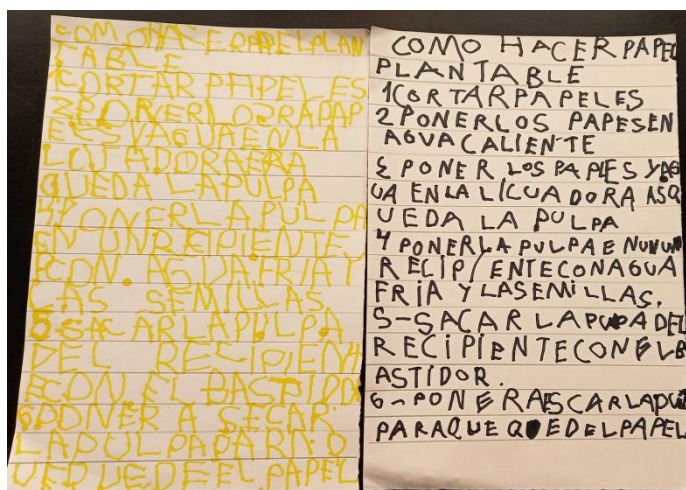 COMO HACER PAPEL PLAN
TABLE
1 CORTAR PAPELES
2 PONER LOS PAP
ES Y AGUA EN LA
QUEDA LA PULPA
4 PONER LA PULPA
EN UN REIPIENTE
CON. AGUA FRIA Y
LAS SEMILLAS
5 SACAR LA PULPA
DEL RECIPIENT
ECON. EL BASTIDO
6 PONER A SECAR
LA PULPA
COMO HACER PAPEL
PLANTABLE
1 CORTAR PAPELES
2 PONERLOS PAPES EN
AGUA CALIENTE
PONER LOS PAPLES Y AG
UA EN LA LICUADORA ASQ
UEDA LA PULPA
4 PONER LA PULPA EN UNU
RECIPIENTE CON AGUA
FRIA Y LA SEMILLAS.
5-SACAR LA PUPA DEL
RECIPIENTE CON EL B
ASTIDOR.
6-PONER A
PARA QUE QUEDE EL PAPEL